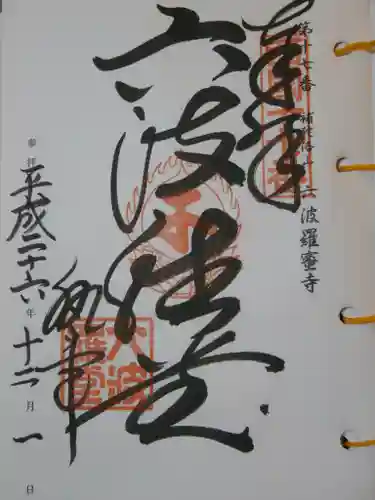 第十七番 補陀洛山 六波羅蜜寺
奉拝
六波羅堂
執事
参拝 平成二十六年 十二月 一日